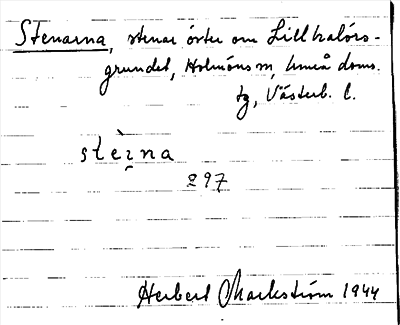 Stenarna, stenar öster om Lill halörs-
grundet, Holmöns sn, Umeå doms.
tg, Västerb. l.
stèṇna
297
Herbert Markström 1944